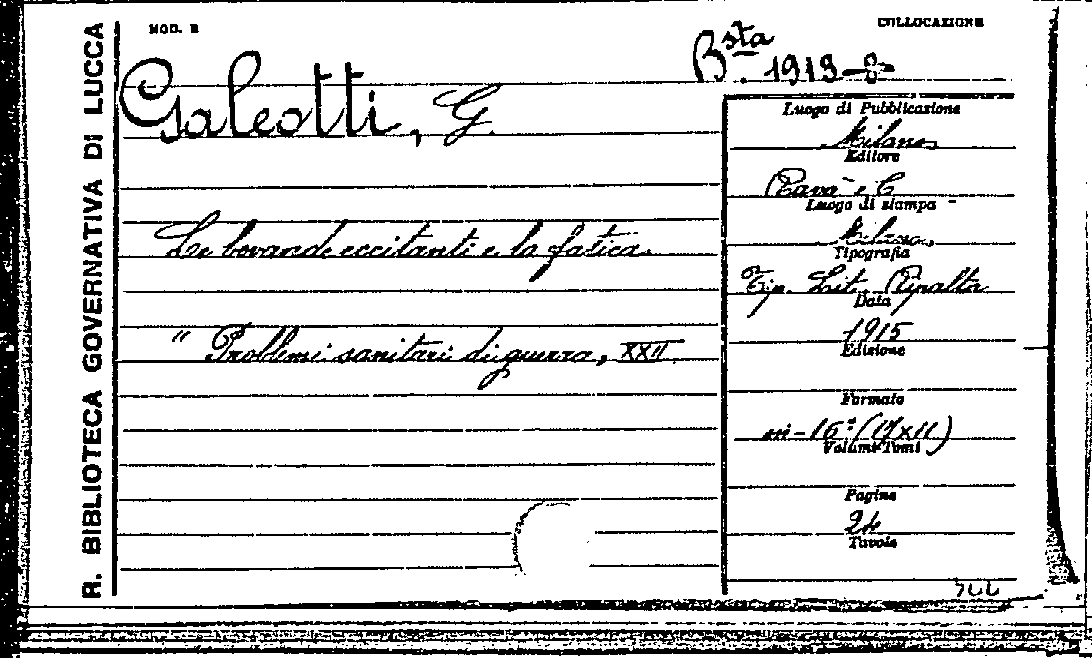 R. BIBLIOTECA GOVERNATIVA DI LUCCA
MOD. B
COLLOCAZIONE
Bsta. 1919-8-
Galeotti, G.
Le bevande eccitanti e la fatica.
" Problemi sanitari di guerra, XXII.
Luogo di Pubblicazione
Milano,
Editore
Ravà e C
Luogo di stampa
Milano,
Tipografia
Tip. Lit. Ripalta
Data
1915
Edizione
Formato
in-16° (17x11)
Volumi-Tomi
Pagine
24
Tavole